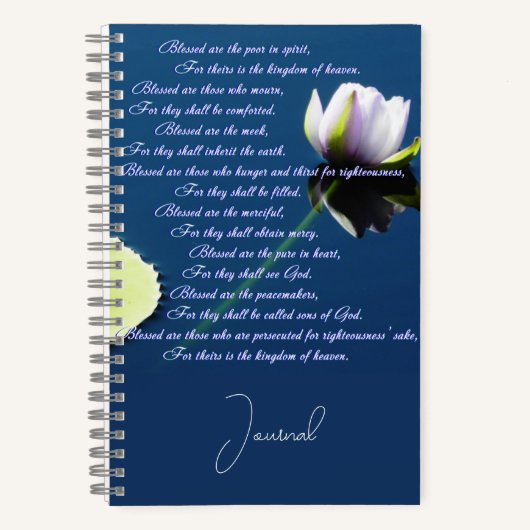 Blessed are the poor in spirit,
For theirs is the kingdom of heaven.
Blessed are those who mourn,
For they shall be comforted.
Blessed are the meek,
For they shall inherit the earth.
Blessed are those who hunger and thirst for righteousness,
For they shall be filled.
Blessed are the merciful,
For they shall obtain mercy.
Blessed are the pure in heart,
For they shall see God.
Blessed are the peacemakers,
For they shall be called sons of God.
Blessed are those who are persecuted for righteousness' sake,
For theirs is the kingdom of heaven.
Journal